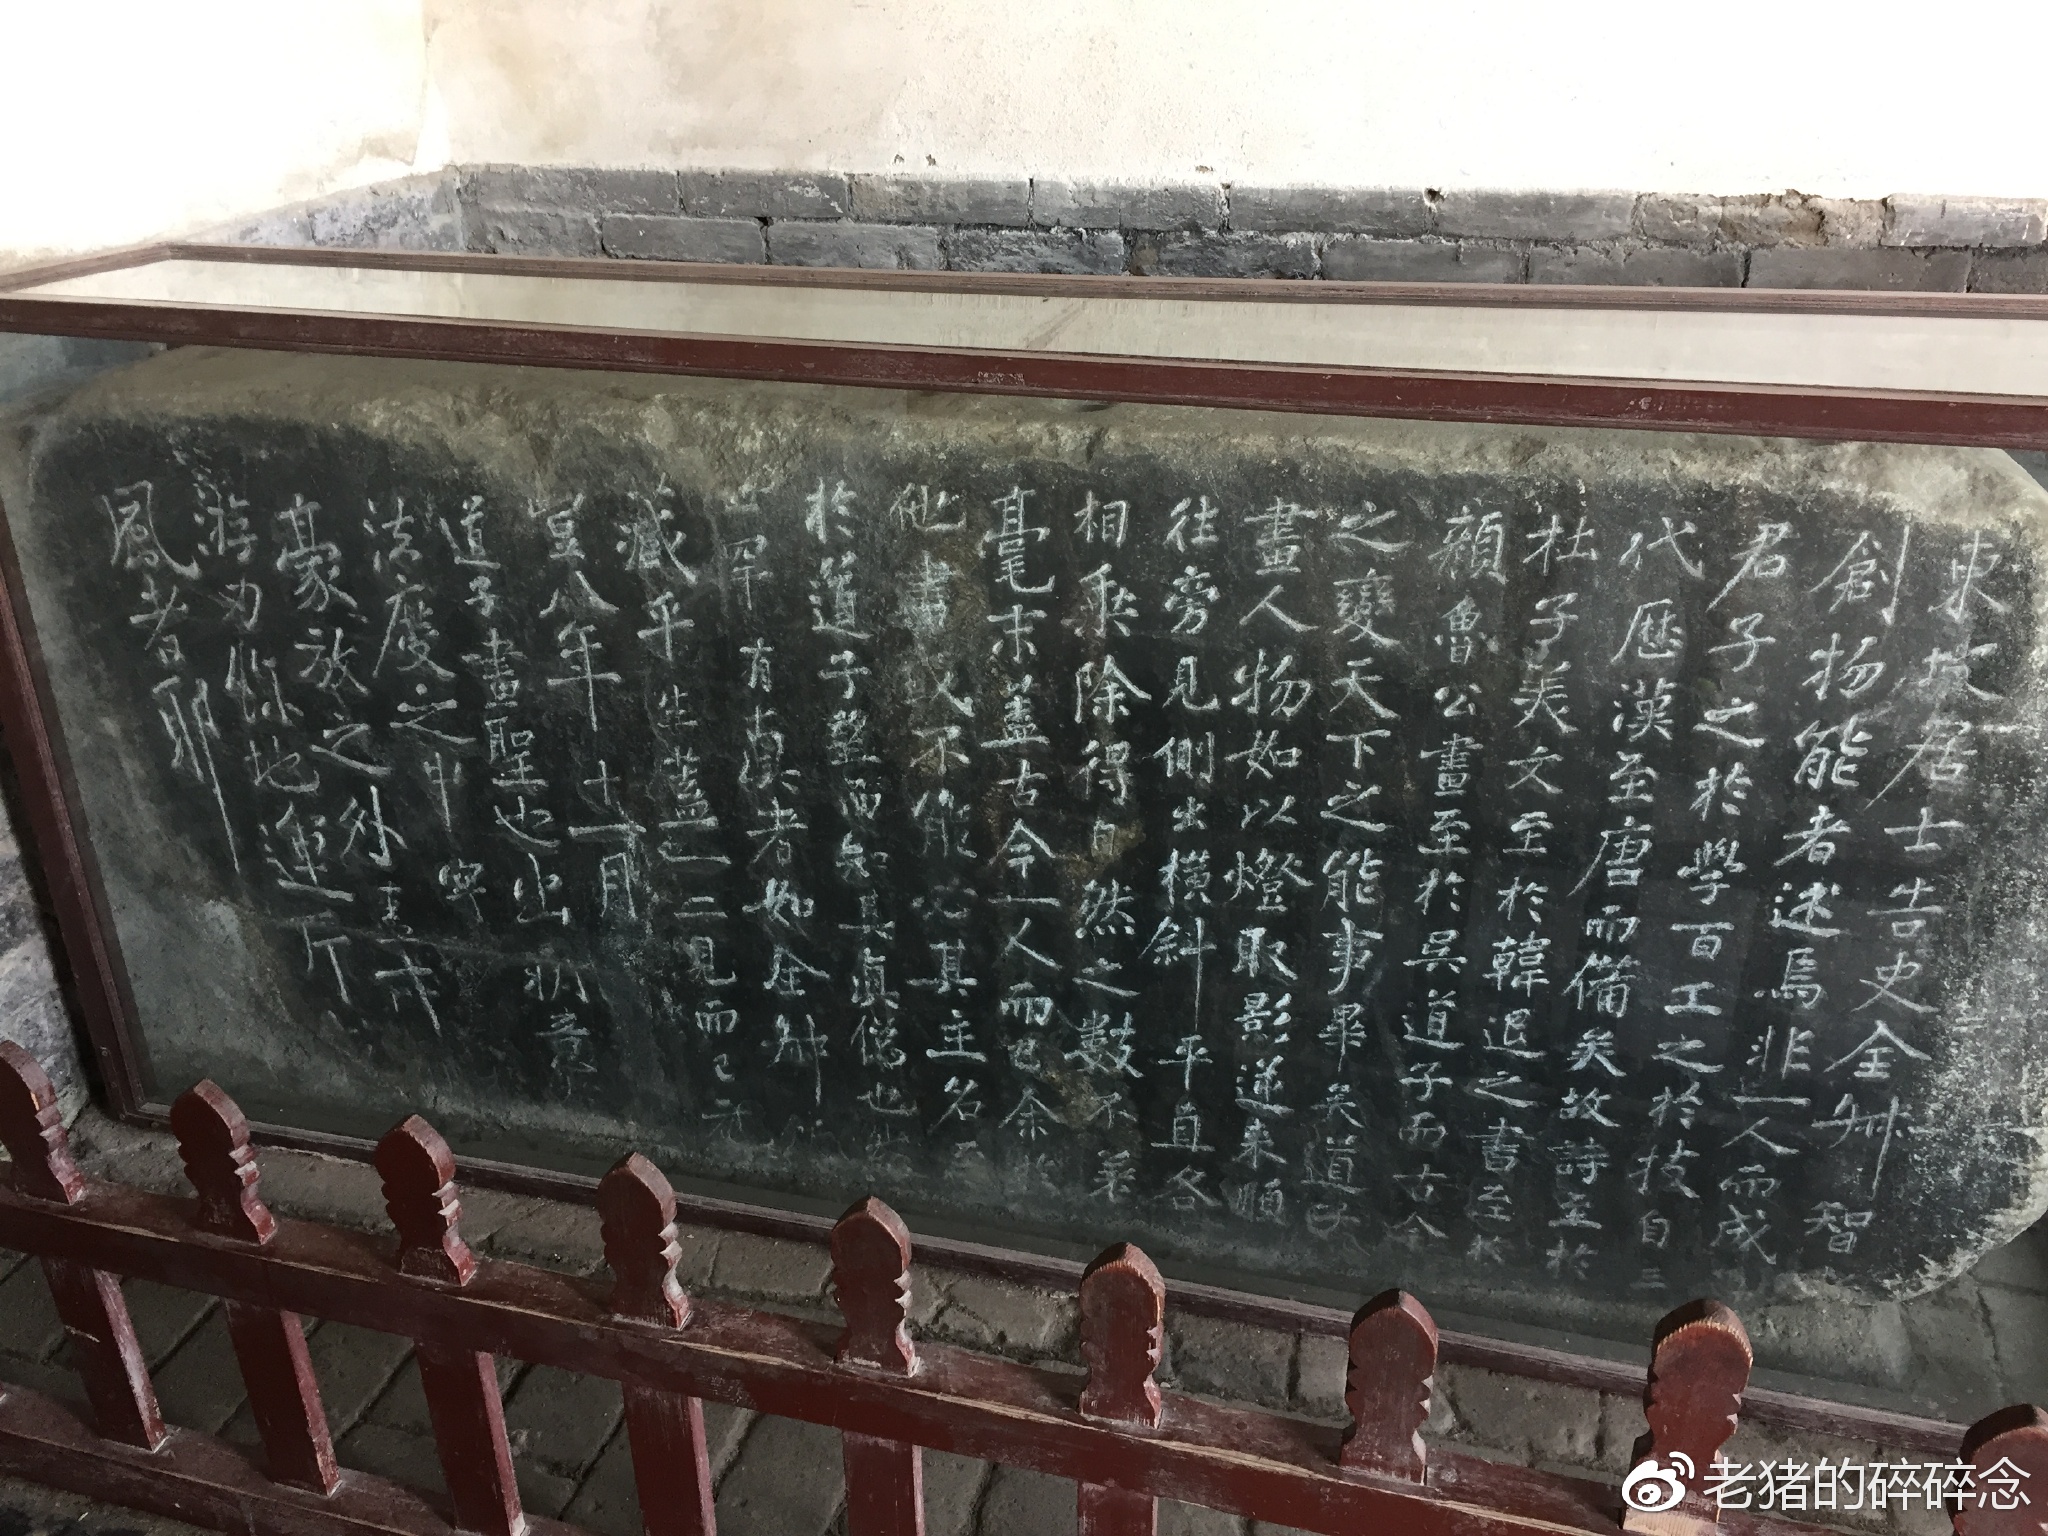 東坡居士告史全叔智
創物能者述焉非一人而成
君子之於學百工之於技自三
代歷漢至唐而備矣故詩至於
杜子美文至於韓退之書至於
顔魯公畫至於吳道子而古今
之變天下之能事畢矣道子
畫人物如以燈取影逆來順
往旁見側出橫斜平直各
相乘除得自然之數不差
毫末蓋古今一人而已余於
他畫或不能必其主名至
於道子望而知其真僞也然
罕有真者如全叔所
藏平生蓋一二見而已元
豐八年十一月
道子畫聖也出新意
法度之中寄
豪放之外盖所
游刃餘地運斤
風者耶
老猪的碎碎念